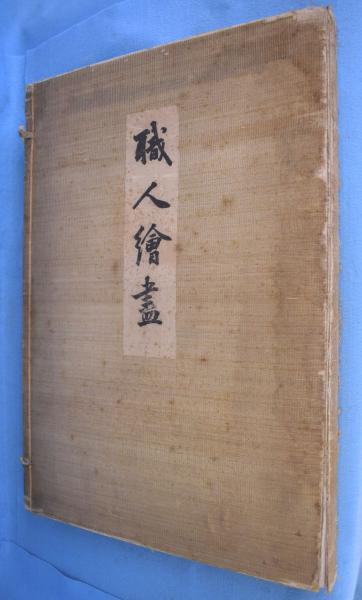 職人繪盡